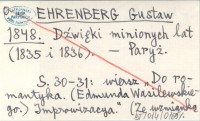 EHRENBERG Gustaw
1848. Dźwięki minionych lat
(1835 i 1836). – Paryż.
S. 30-31: wiersz „Do ro-
mantyka. (Edmunda Wasilewskie-
go.) Improwizacya." (Ze wzmianką